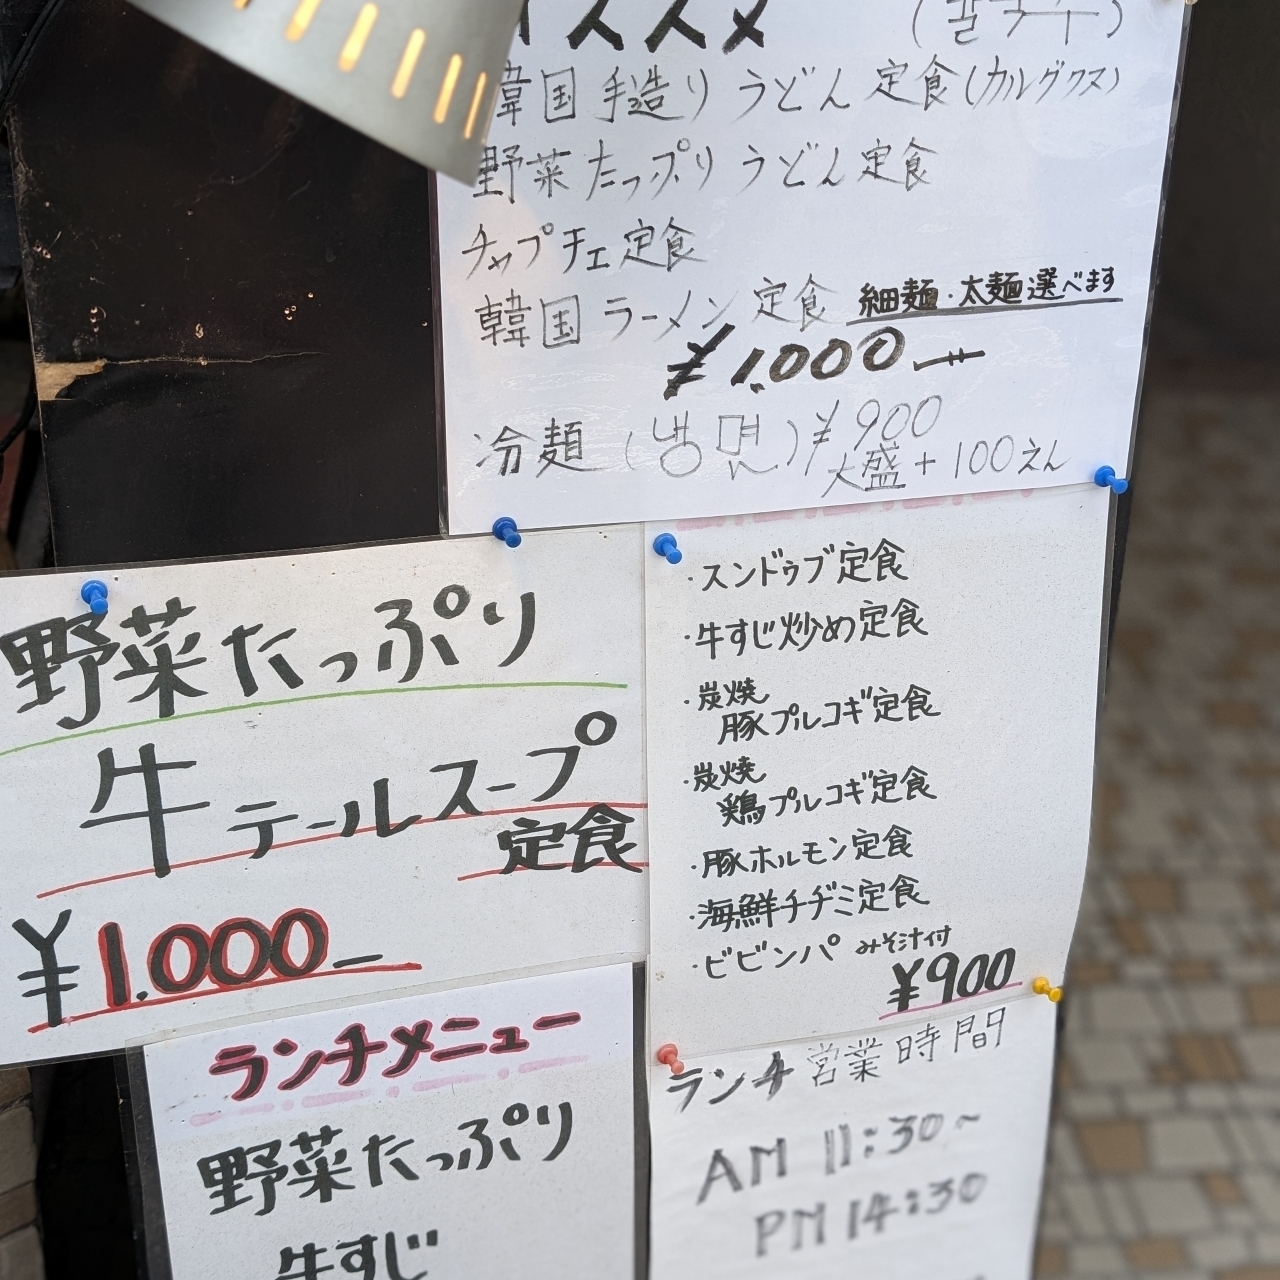 オススメ (칼국수)
韓国手造りうどん定食(カルグクス)
野菜たっぷりうどん定食
チャプチェ定食
韓国ラーメン定食 細麺・太麺選べます
¥1,000
冷麺(냉면)¥900
大盛+100えん
野菜たっぷり
牛テールスープ
定食
¥1.000-
・スンドゥブ定食
・牛すじ炒め定食
・炭焼
豚プルコギ定食
・炭焼
鶏プルコギ定食
・豚ホルモン定食
・海鮮チヂミ定食
・ビビンパ みそ汁付
¥900
ランチメニュー
野菜たっぷり
牛すじ
ランチ営業時間
AM 11:30~
PM 14:30